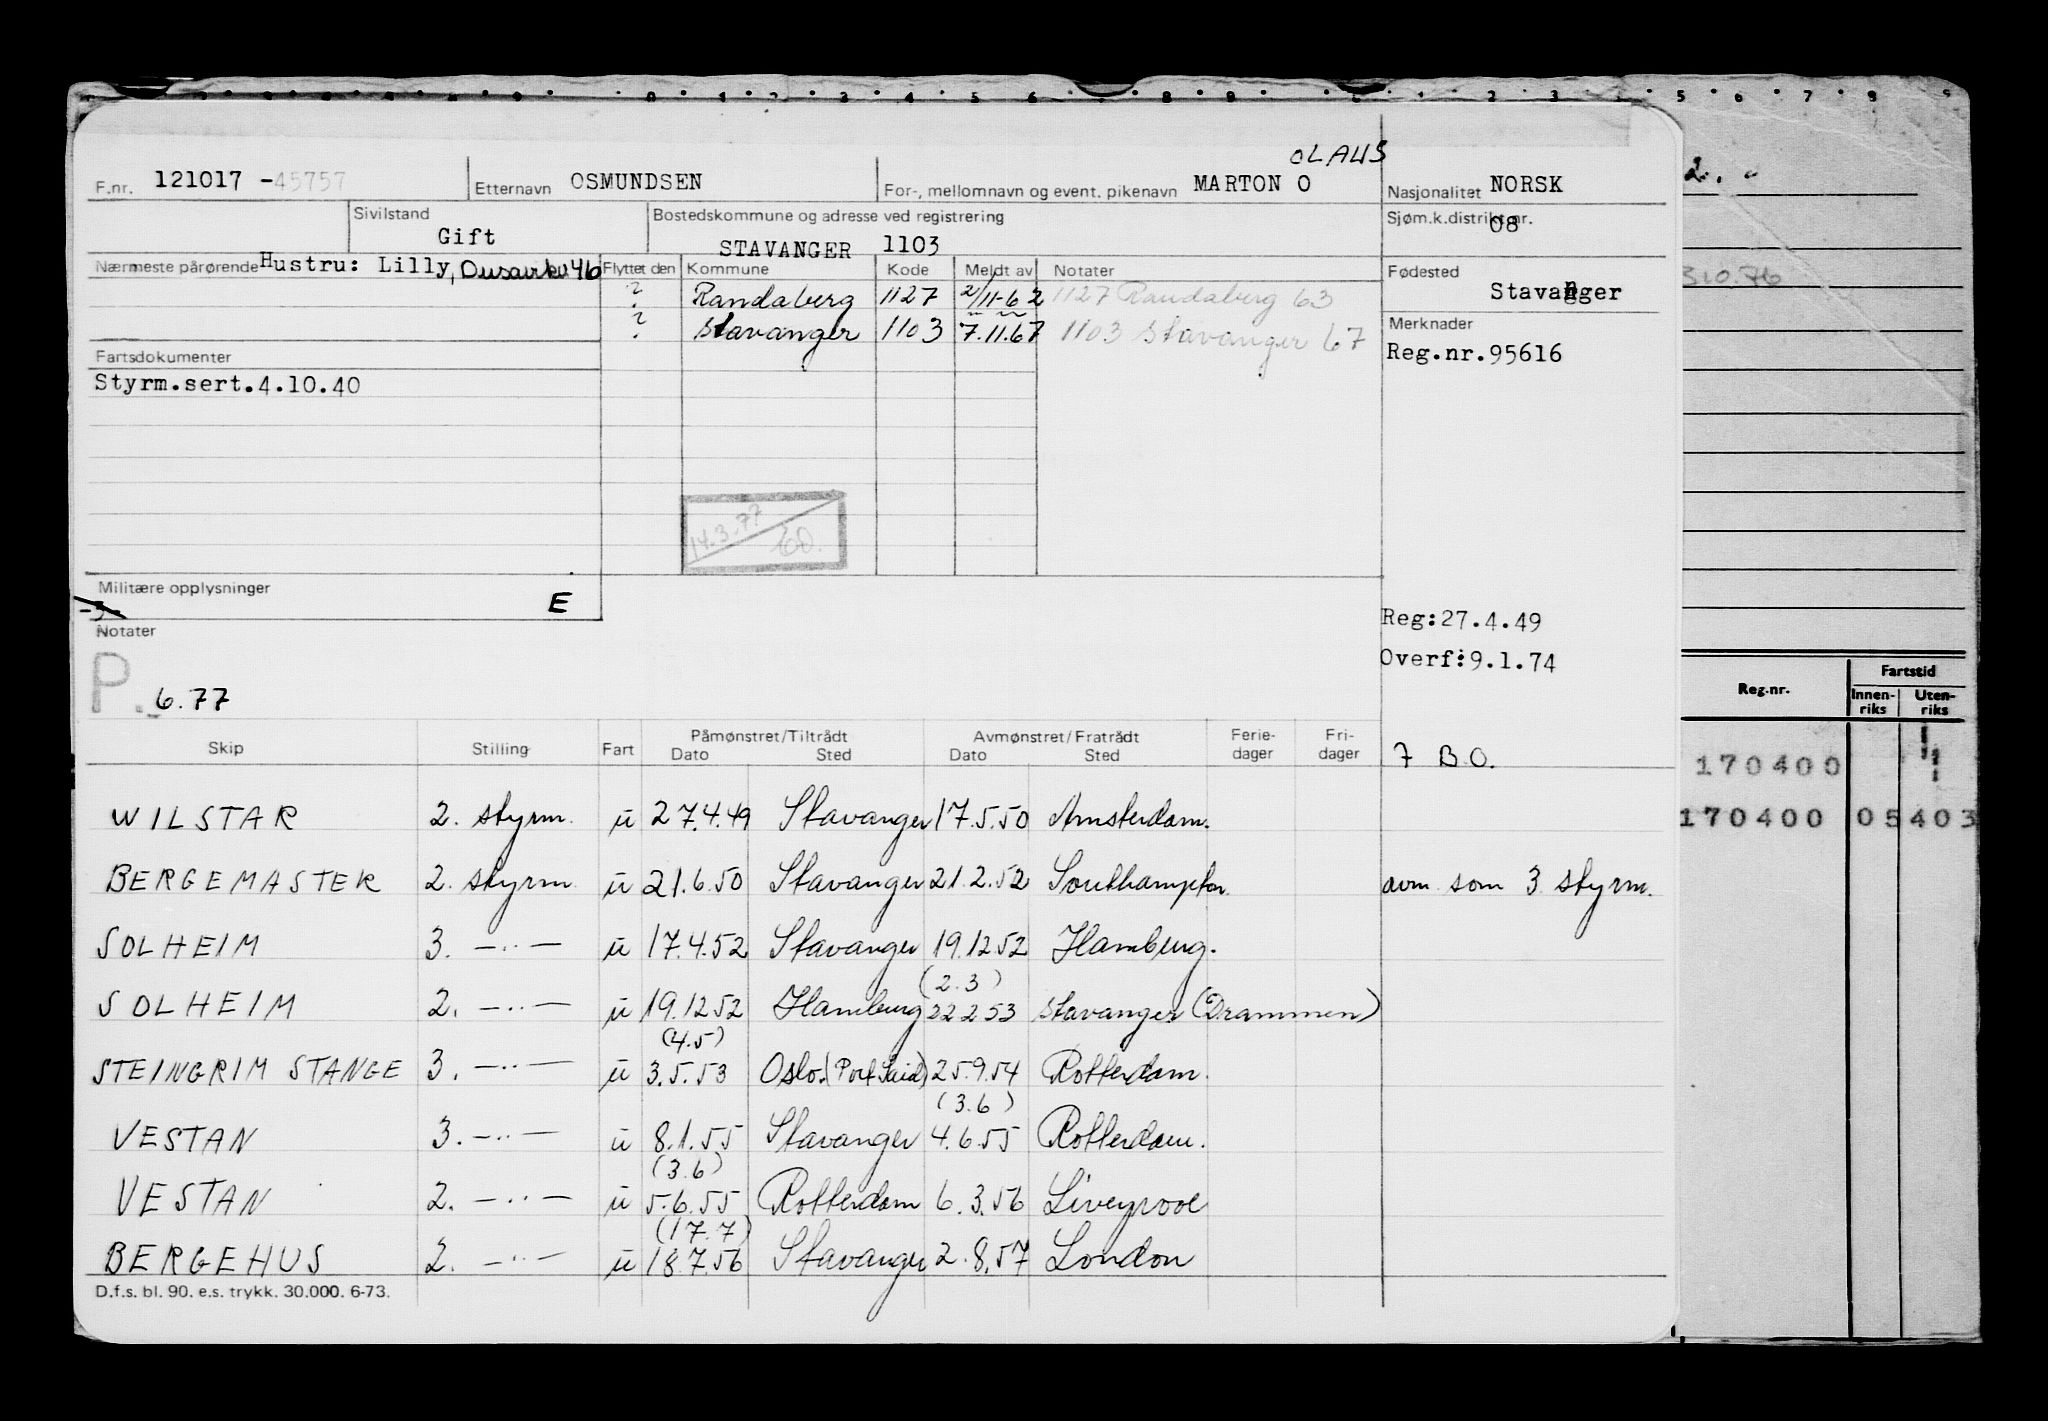 OLAUS
F.nr. 121017 -45757 Etternavn OSMUNDSEN For-, mellomnavn og event. pikenavn MARTON O Nasjonalitet NORSK
Sivilstand Gift Bostedskommune og adresse ved registrering STAVANGER 1103 Sjøm.k.distrikt nr. 08
Nærmeste pårørende Hustru: Lilly, Flyttet den Kommune Kode Meldt av Notater Fødested Stavanger
? Randaberg 1127 2/11-62 1127 Randaberg 63
? Stavanger 1103 7.11.67 1103 Stavanger 67
Merknader
Reg.nr.95616
Fartsdokumenter
Styrm.sert.4.10.40
14.3.77
Militære opplysninger E
-3-
Notater
P. 6.77
Reg:27.4.49
Overf:9.1.74
Skip Stilling Fart Påmønstret/Tiltrådt Dato Sted Avmønstret/Fratrådt Dato Sted Ferie-dager Fri-dager 7 B.O.
WILSTAR 2. styrm. u 27.4.49 Stavanger 17.5.50 Amsterdam.
BERGEMASTER 2. styrm u 21.6.50 Stavanger 21.2.52 Southampton. avm som 3 styrm.
SOLHEIM 3. -..- u 17.4.52 Stavanger 19.12.52 Hamburg.
(2.3)
SOLHEIM 2. -..- u 19.12.52 Hamburg 22.2.53 Stavanger (Drammen)
(4.5)
STEINGRIM STANGE 3. -..- u 3.5.53 Oslo. (Port Said) 25.9.54 Rotterdam.
(3.6)
VESTAN 3. -..- u 8.1.55 Stavanger 4.6.55 Rotterdam.
(3.6)
VESTAN 2. -..- u 5.6.55 Rotterdam 6.3.56 Liverpool
(17.7)
BERGEHUS 2. -..- u 18.7.56 Stavanger 2.8.57 London
D.f.s. bl. 90. e.s. trykk. 30.000. 6-73.
2. "
310.76
Reg.nr. Fartstid
Innen-riks Uten-riks
170400
170400 05 403